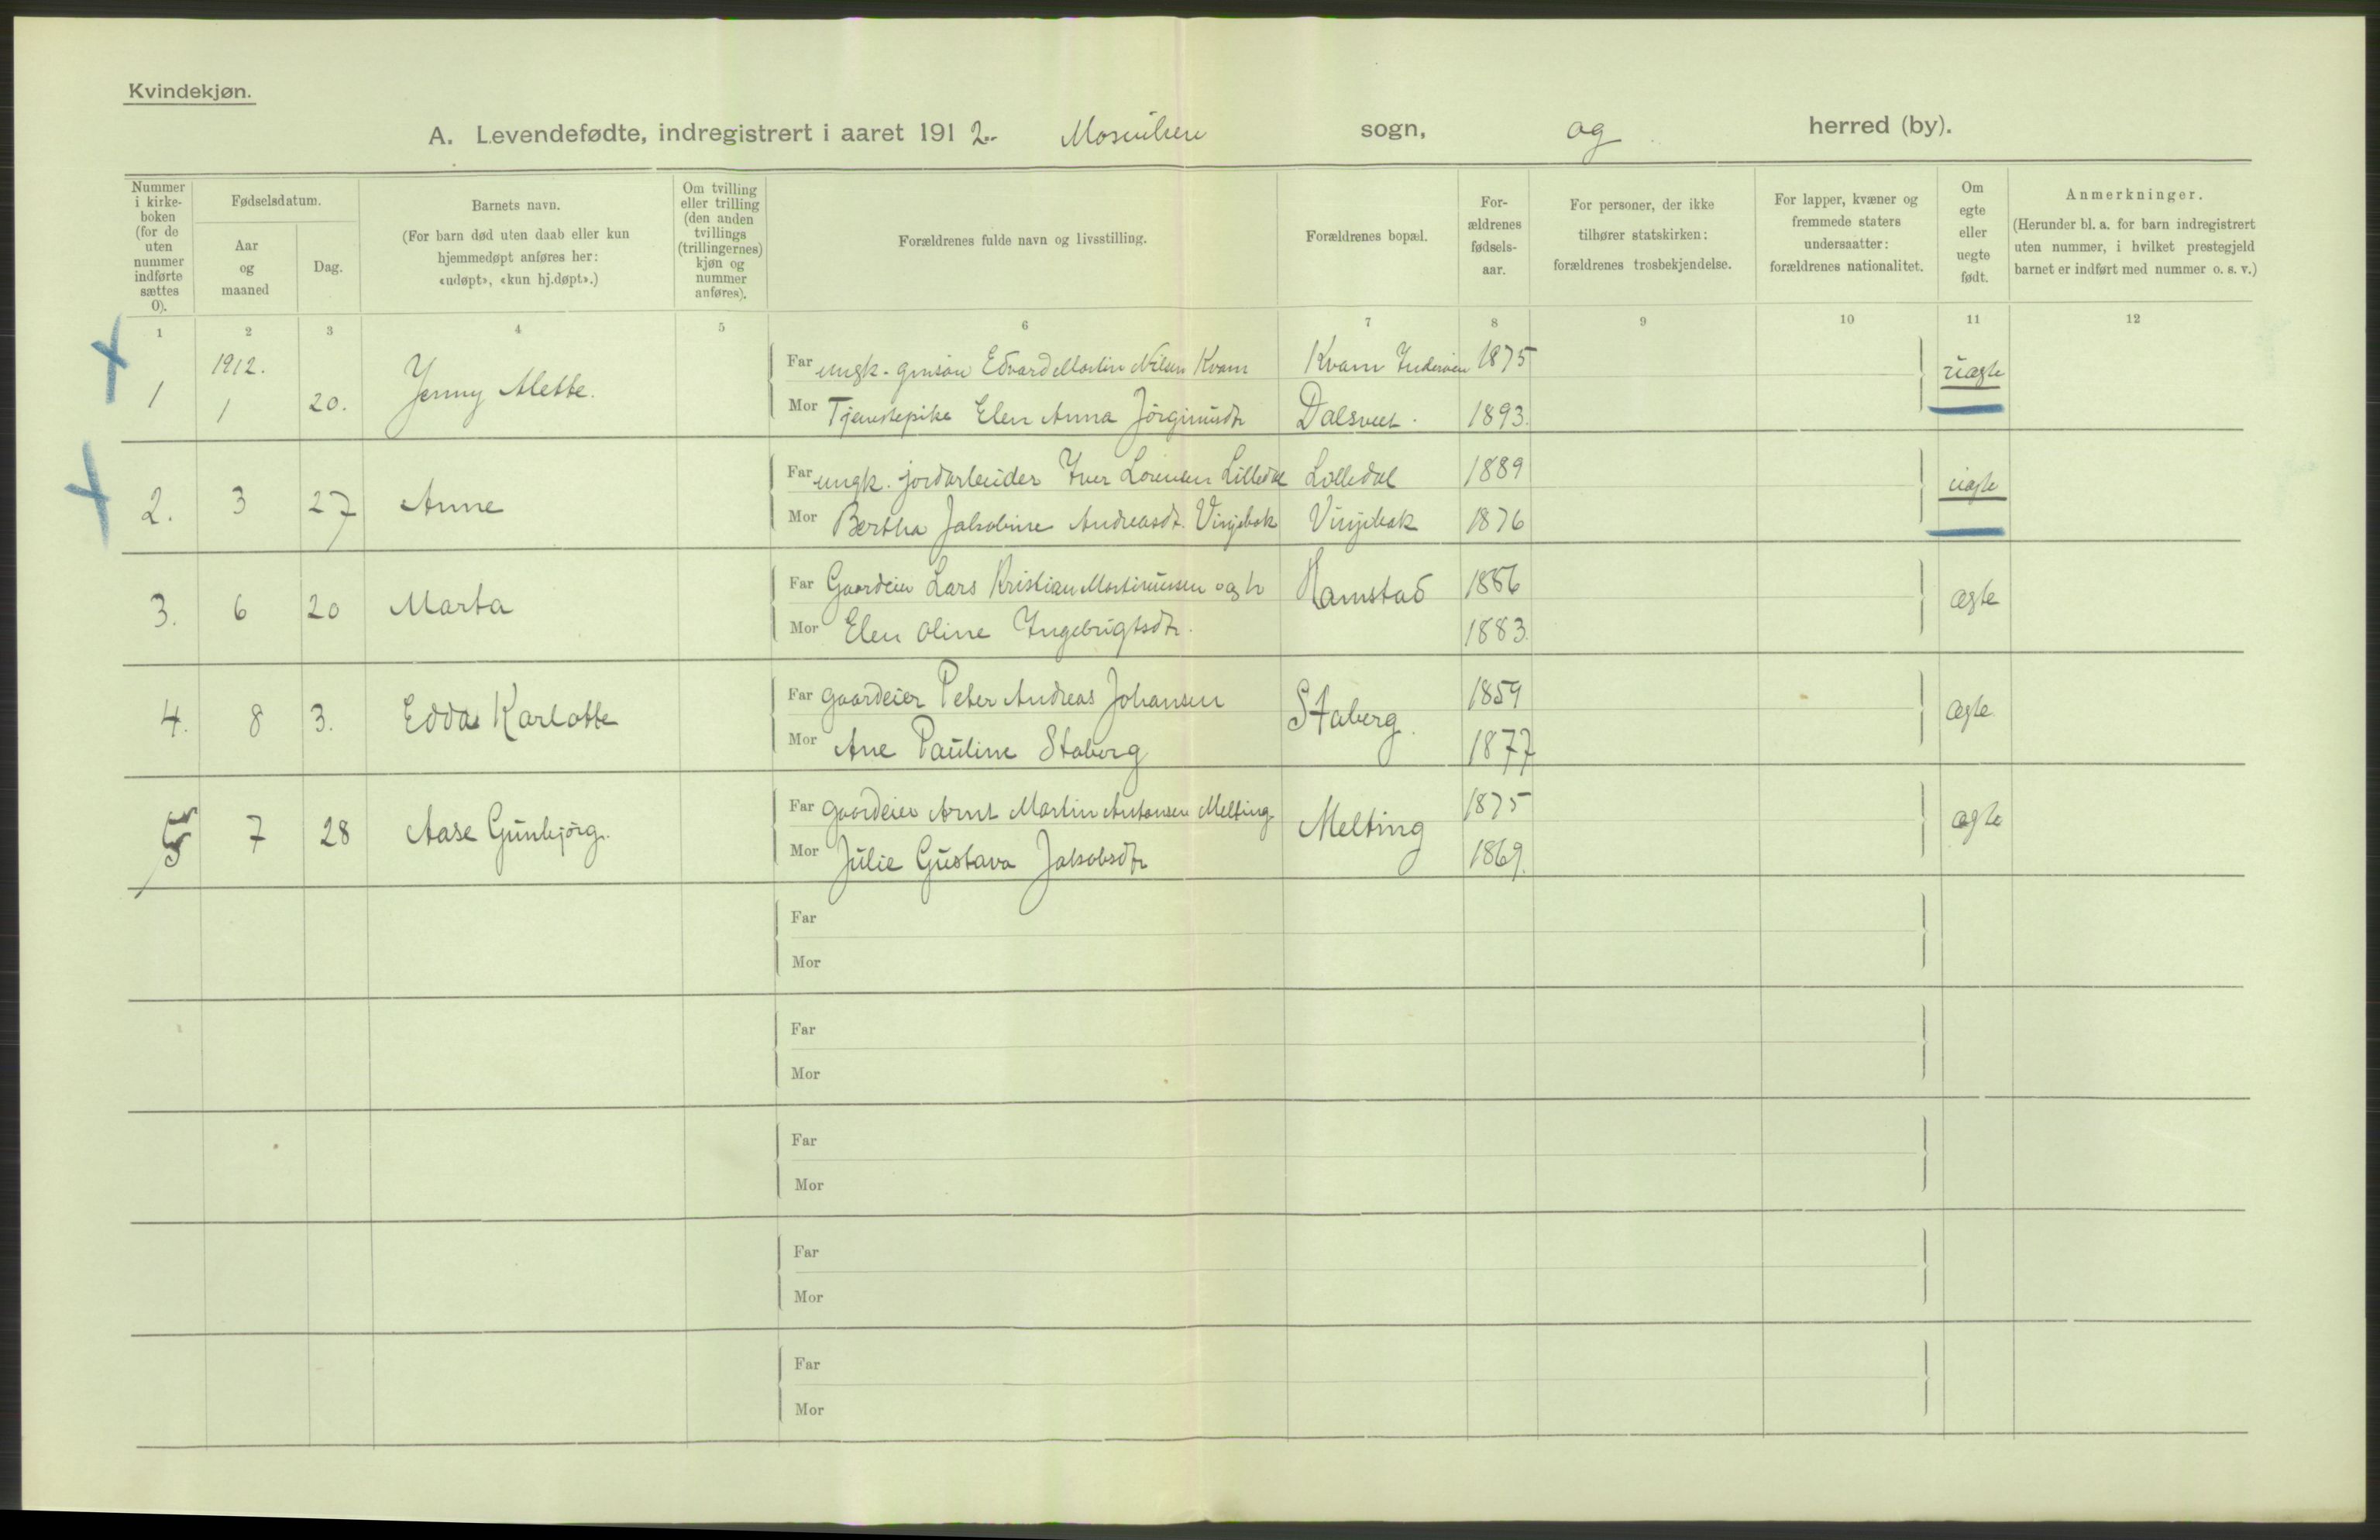 Kvindekjøn.
A. Levendefødte, indregistrert i aaret 1912. Mosviken sogn, og herred (by).
Nummer i kirke-boken (for de uten nummer indførte sættes 0).
Fødselsdatum.
Aar og maaned
Dag.
Barnets navn.
(For barn død uten daab eller kun hjemmedøpt anføres her: «udøpt», «kun hj.døpt».)
Om tvilling eller trilling (den anden tvillings (trillingernes) kjøn og nummer anføres).
Forældrenes fulde navn og livsstilling.
Forældrenes bopæl.
For-ældrenes fødsels-aar.
For personer, der ikke tilhører statskirken: forældrenes trosbekjendelse.
For lapper, kvæner og fremmede staters undersaatter: forældrenes nationalitet.
Om egte eller uegte født.
Anmerkninger.
(Herunder bl. a. for barn indregistrert uten nummer, i hvilket prestegjeld barnet er indført med nummer o. s. v.)
1 2 3 4 5 6 7 8 9 10 11 12
1912.
Far ungk. Edvard Martin Nilsen Kvam Kvam Inderøen 1875
1 1 20. Jenny Alette. uægte
Mor Tjenestepike Elen Anna Jørginusdtr Dalsveet. 1893.
Far ungk. jordarbeider Iver Lorentsen Lilledal Lilledal 1889
2. 3 27 Anne uægte
Mor Bertha Jakobine Andreasdt. Vinjebak Vinjebak 1876
Far Gaardeier Lars Kristian Martinussen og h Hamstad 1886
3. 6 20 Marta ægte
Mor Elen Oline Ingebrigtsdtr. 1883.
Far gaardeier Peter Andreas Johansen Staberg. 1859
4. 8 3. Edda Karlotte ægte.
Mor Ane Pauline Staberg 1877
Far gaardeier Arnt Martin Antonsen Melting Melting 1875
5 7 28 Aase Gunbjørg. ægte
Mor Julie Gustava Jakobsdtr 1869.
Far
Mor
Far
Mor
Far
Mor
Far
Mor
Far
Mor